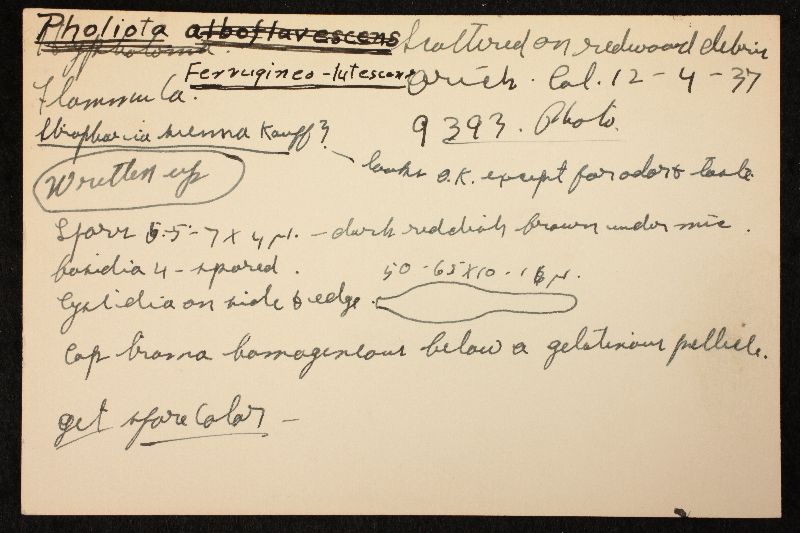 Pholiota alboflavescens
Hypholoma.
Ferrugineo-lutescens
Flammula.
Stropharia sienna Kauff?
Written up
Scattered on redwood debris
Orick. Cal. 12-4-37
9393. Photo.
looks O.K. except for odor & taste.
Spores 5.5-7 x 4 µ. - dark reddish brown under mic.
basidia 4-spored.
50-65 x 10-16 µ.
Cystidia on side & edge.
Cap trama homogeneous below a gelatinous pellicle.
get spore color -